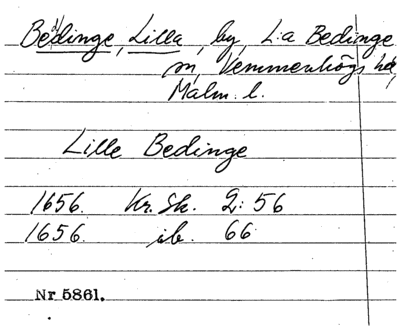 Beddinge, Lilla, by, L:a Bedinge
sn, Vemmenhögs hd,
Malm. l.
Lille Bedinge
1656. Kr. Sk. 2: 56
1656. ib. 66
Nr 5861.